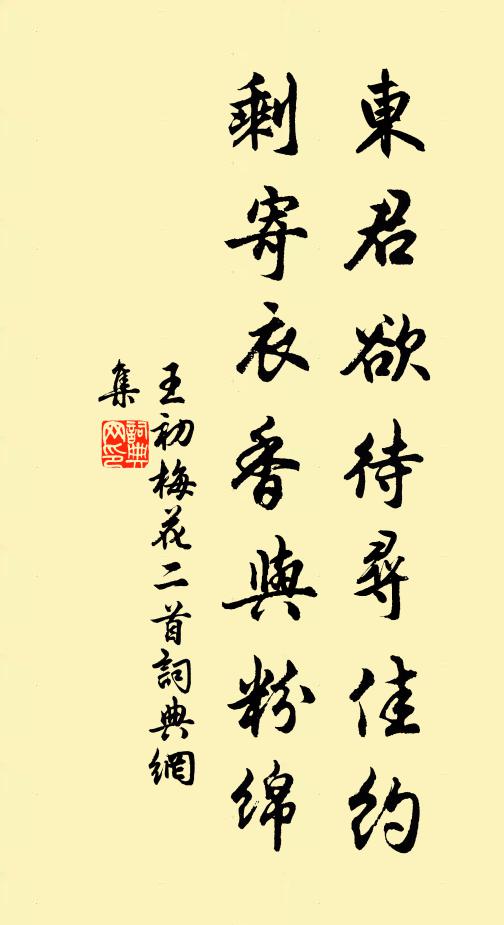 東君欲待尋佳約
剩寄衣香與粉綿
王初梅花二首詞典網
集
詞典
网印